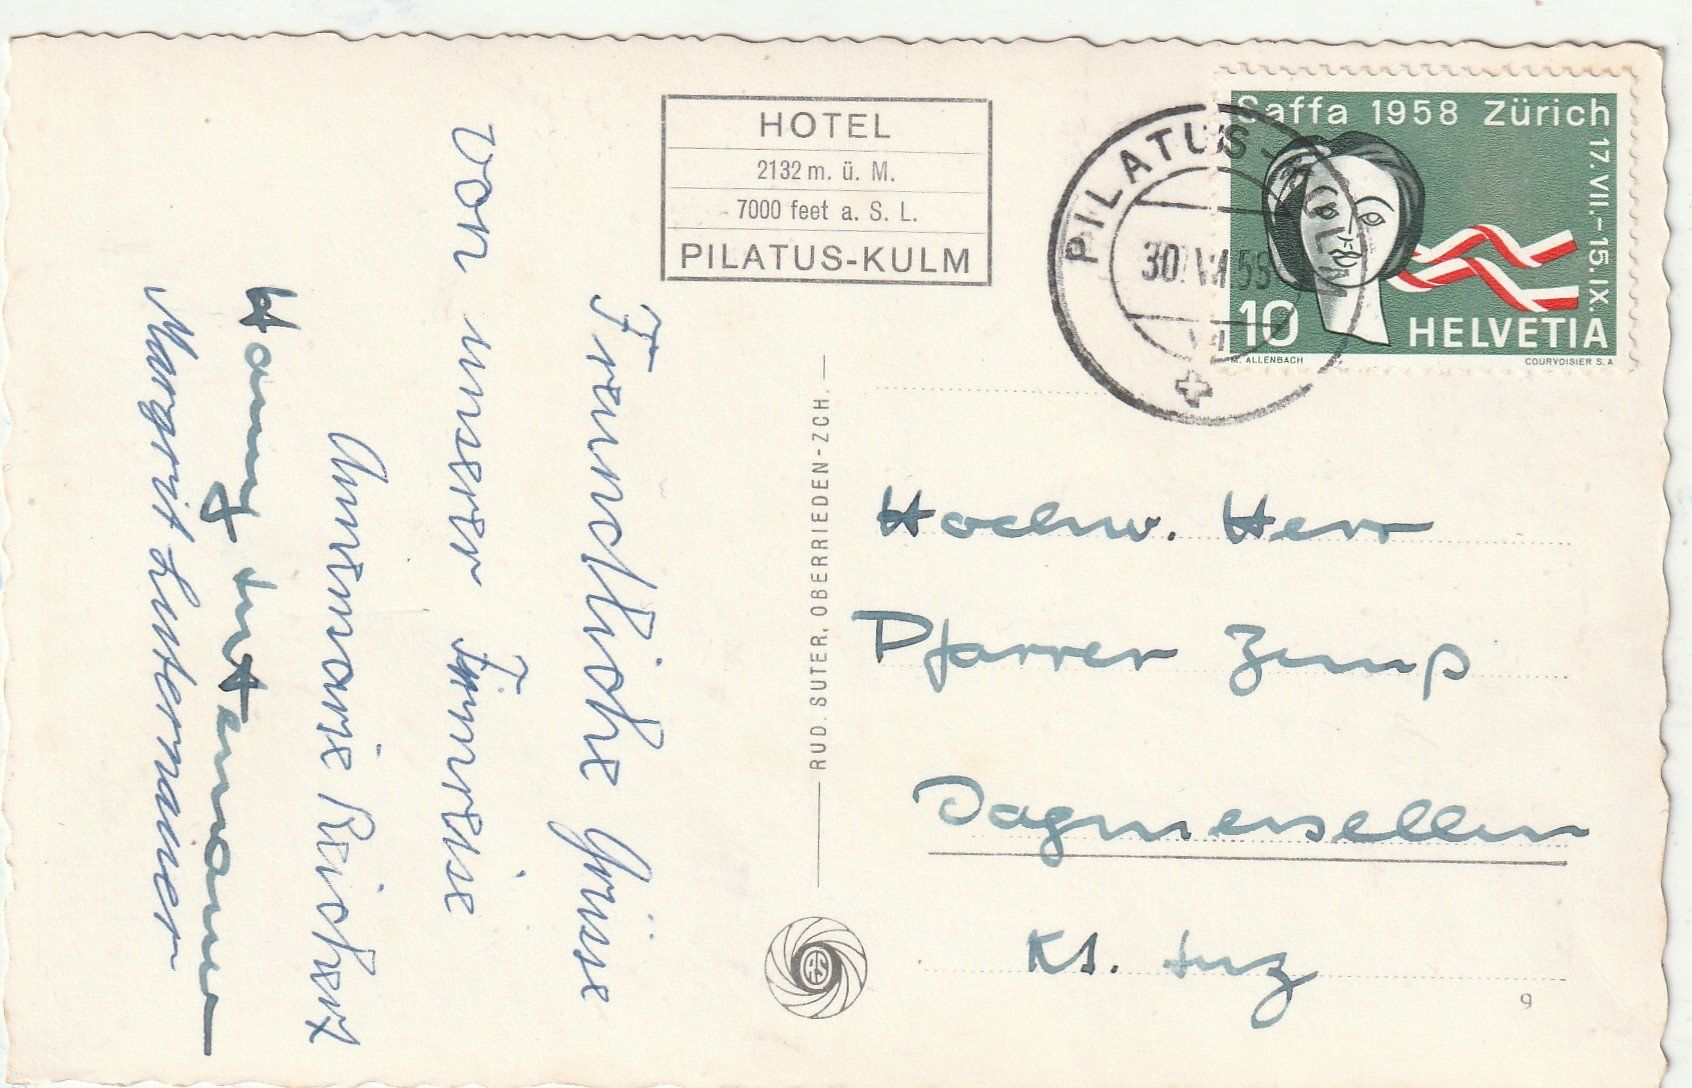 HOTEL
2132 m. ü. M.
7000 feet a. S. L.
PILATUS-KULM
PILATUS-KULM
30. VI. 58
Saffa 1958 Zürich
17. VII.-15. IX.
10 HELVETIA
M. ALLENBACH COURVOISIER S. A.
Freundliche Grüsse
von unserer Turnreise
Annemarie Reichert
Hanny Lustenmanner
Margrit Lustenmanner
RUD. SUTER, OBERRIEDEN-ZCH.
RS
Hochw. Herr
Pfarrer Zemp
Dagmersellen
Kt. Luz
9